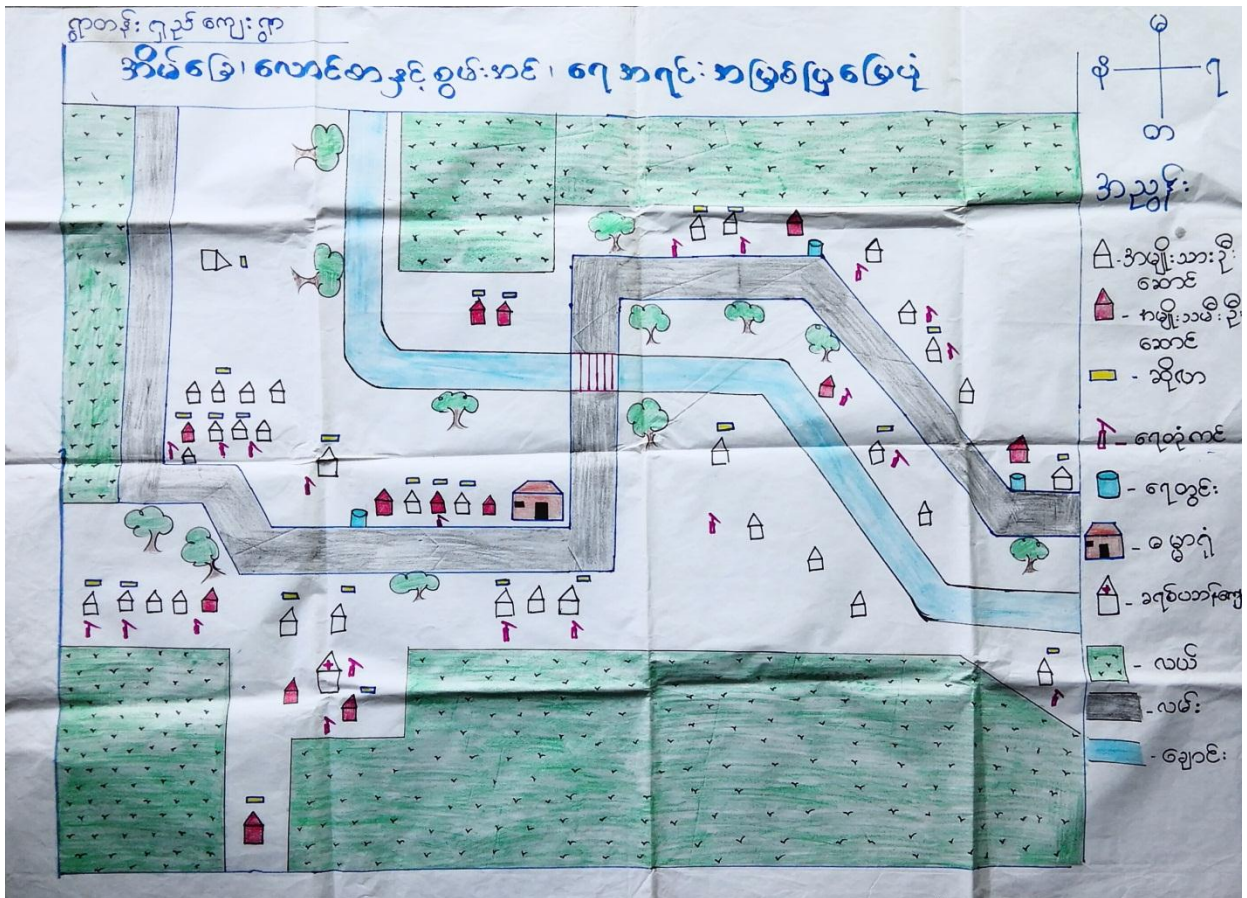 ရွာတန်း ရှည် ကျေးရွာ
အိမ်ခြေ၊ လောင်စာနှင့် စွမ်းအင် ၊ ရေအရင်း အမြစ်ပြမြေပုံ
မ
န ရ
တ
အညွှန်း
- အမျိုးသားဦး
ဆောင်
- အမျိုးသမီးဦး
ဆောင်
- ဆိုလာ
- ရေတုံကင်
- ရေတွင်း
- ဓမ္မာရုံ
- ခရစ်ယာန်ကျောင်း
- လယ်
- လမ်း
- ချောင်း